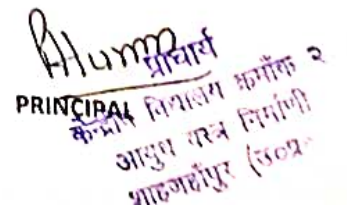 प्राचार्य
PRINCIPAL
केन्द्रीय विद्यालय क्रमाँक २
आयुध वस्त्र निर्माणी
शाहजहाँपुर (उ०प्र०